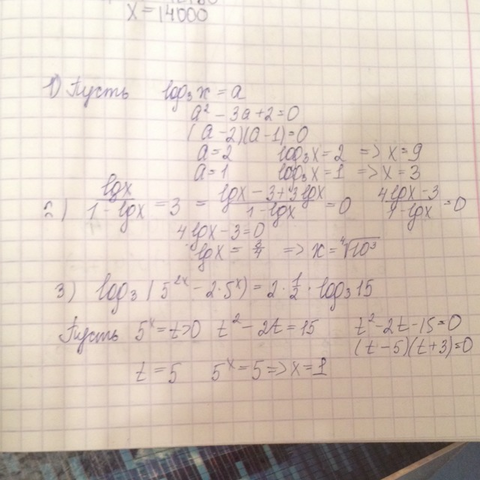 x=14000
1) Пусть log₃x = a
a² − 3a + 2 = 0
(a−2)(a−1)=0
a=2 log₃x = 2 => x=9
a=1 log₃x = 1 => x=3
2) lgx/(1−lgx) = 3 = (lgx−3+3lgx)/(1−lgx) = 0 (4lgx−3)/(1−lgx) = 0
4lgx−3=0
lgx = 3/4 => x = ⁴√10³
3) log₃(5²ˣ − 2·5ˣ) = 2·1/2·log₃15
Пусть 5ˣ = t>0 t² − 2t = 15 t² − 2t − 15 = 0
(t−5)(t+3)=0
t = 5 5ˣ = 5 => x = 1